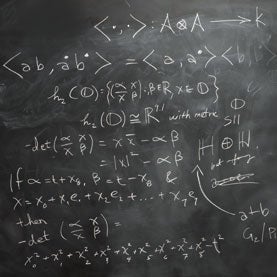 <·,·>: A⊗A → k
<ab, a̅b> = <a, a̅><b
h₂(𝕆) = {(α x̄ / x β) : α,β∈ℝ x∈𝕆}
h₂(𝕆) ≅ ℝ⁹,¹ with metric
𝕆
SII
-det(α x / x̄ β) = x x̄ - αβ
= |x|² - αβ
ℍ ⊕ ℍ,
If α = t + x₈, β = t - x₈ &
x = x₀ + x₁e₁ + x₂e₂ + ... + x₇e₇
a + b
G₂/P
then
-det(α x / x̄ β) =
x₀² + x₁² + x₂² + x₃² + x₄² + x₅² + x₆² + x₇² + x₈² - t²